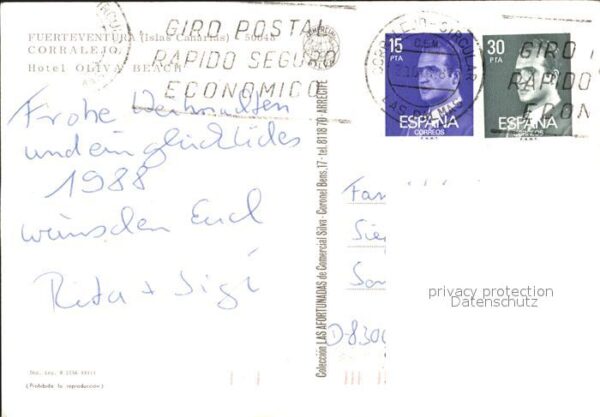 FUERTEVENTURA (Islas Canarias) - 50048
CORRALEJO
Hotel OLIVA BEACH
GIRO POSTAL
RAPIDO SEGURO
ECONOMICO
15
PTA
ESPAÑA
CORREOS
30
PTA
ESPAÑA
CORREOS
GIRO
RAPIDO
Frohe Weihnachten
und ein glückliches
1988
wünschen Euch
Rita + Sigi
Colección LAS AFORTUNADAS de Comercial Silva - Coronel Bens, 17 - tel. 81 18 70 - ARRECIFE
Fam
Sie
D-8300
privacy protection
Datenschutz
(Prohibida la reproducción)